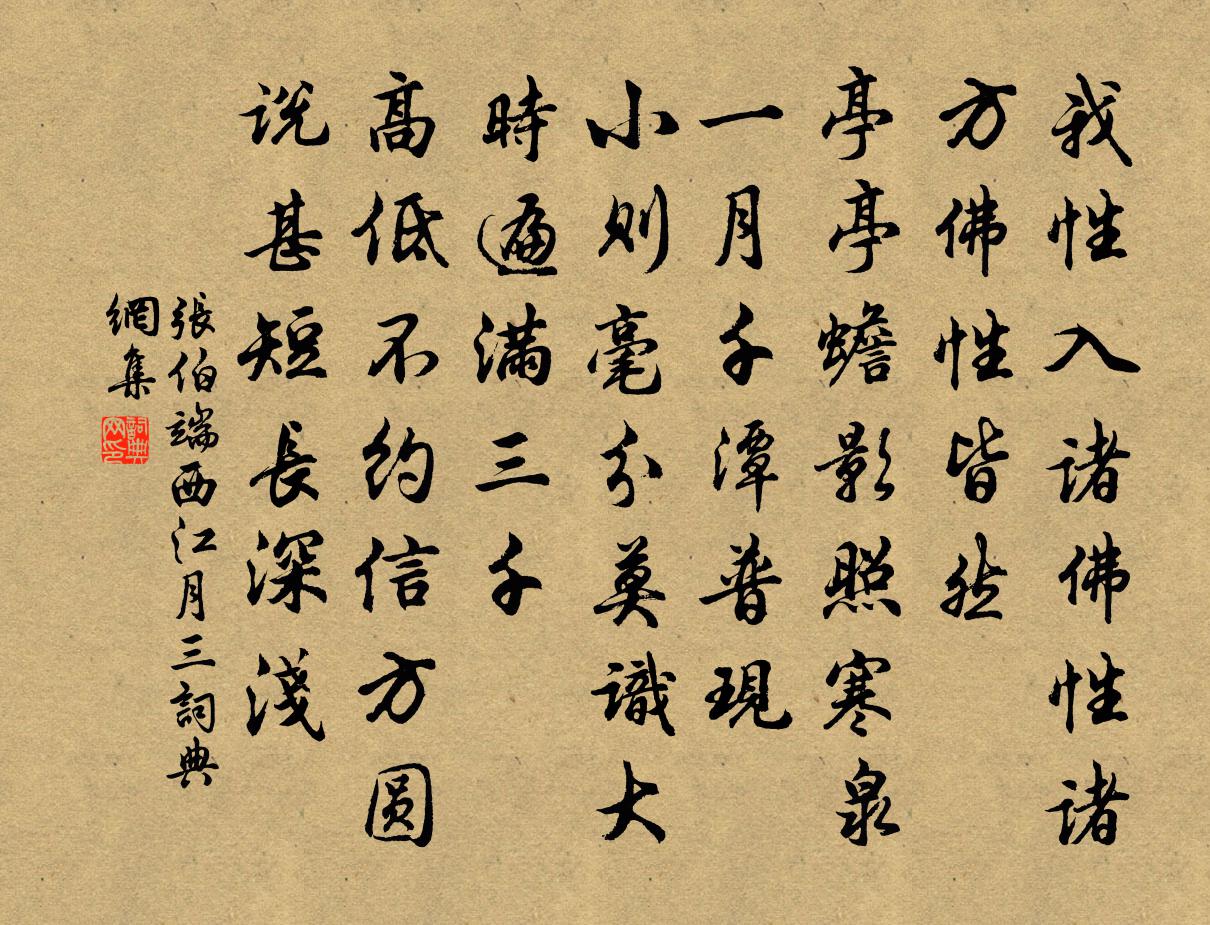 我性入諸佛性諸
方佛性皆然
亭亭蟾影照寒泉
一月千潭普現
小則毫分莫識大
時遍滿三千
高低不約信方圓
說甚短長深淺
張伯端西江月三詞典
網集
詞典
网印